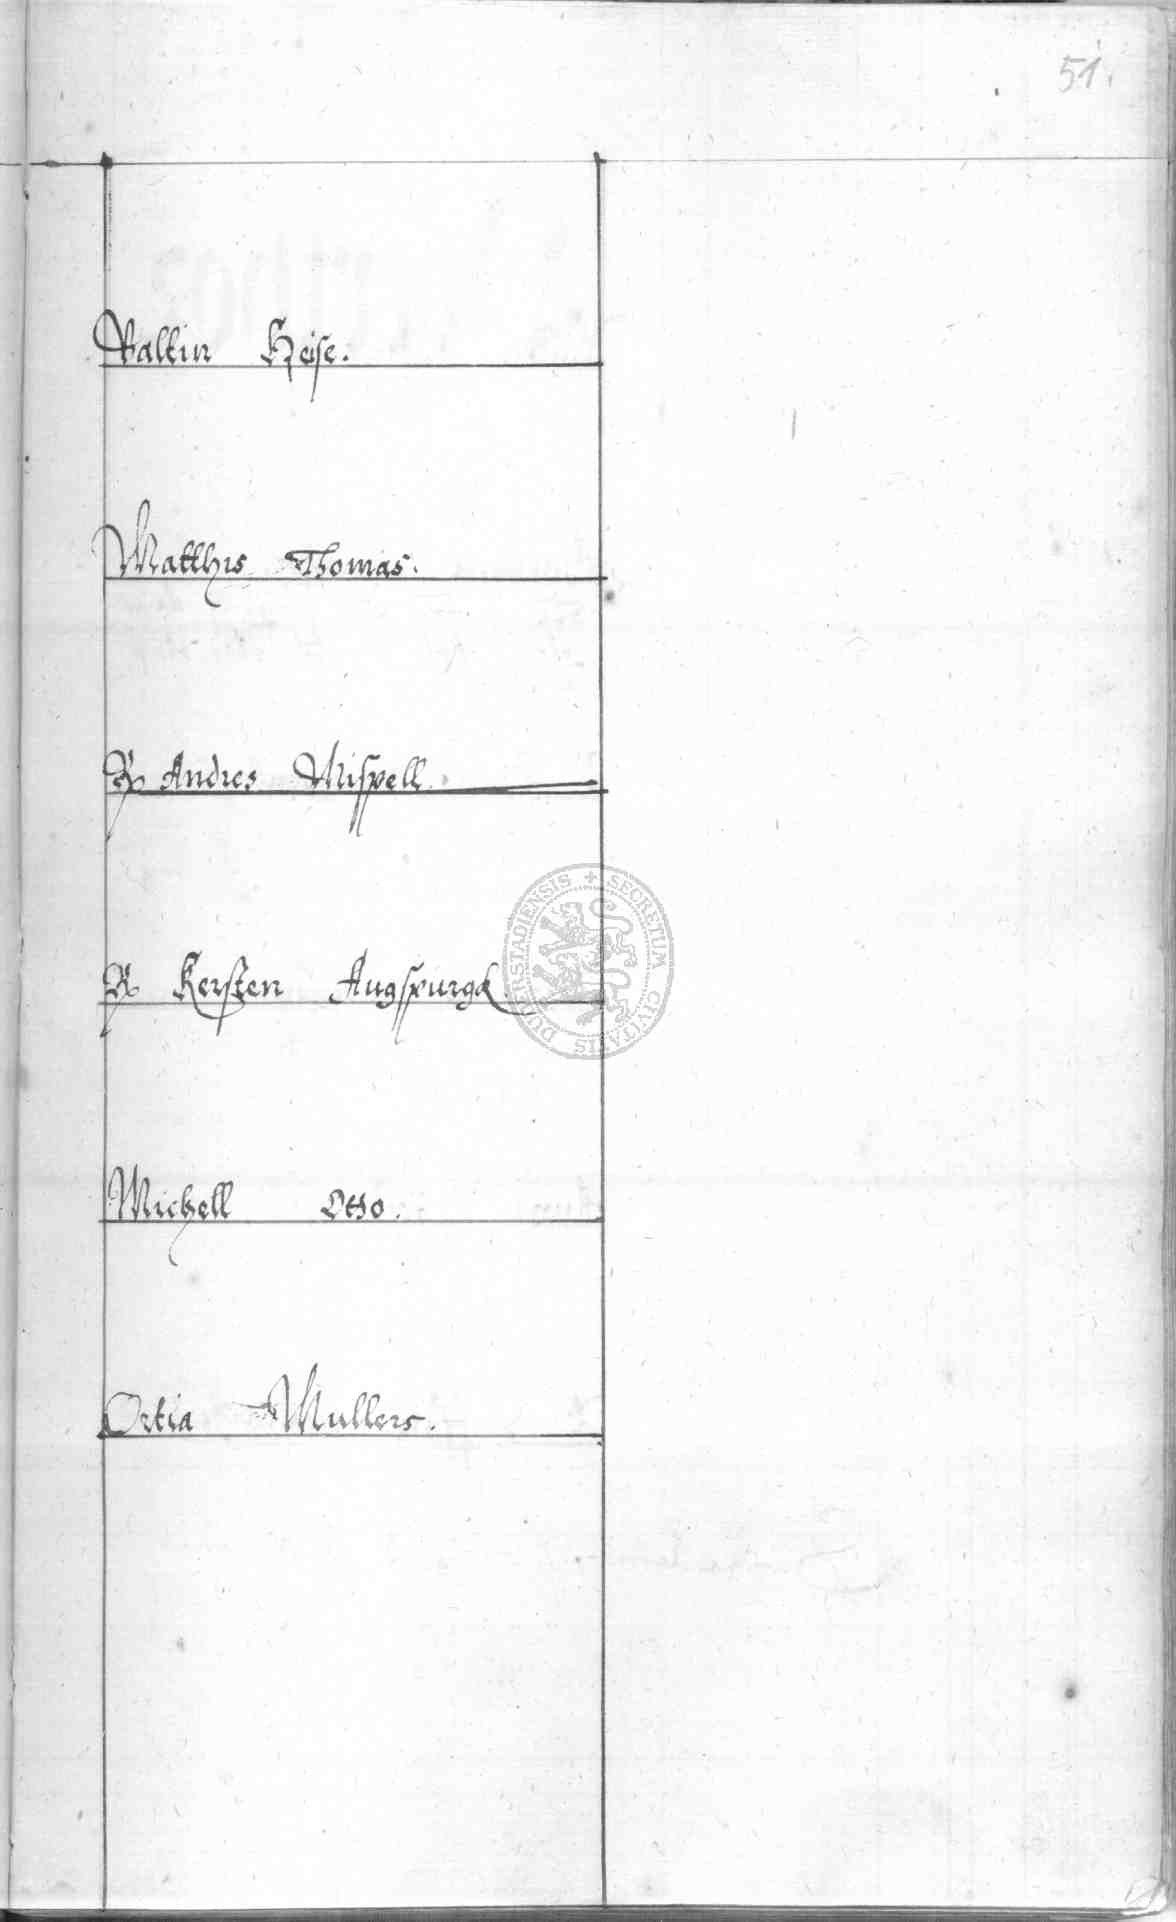 51.
Valtin Heise.
Matthis Thomas.
Andres Mispell.
Kersten Augspurgk.
SECRETUM CIVITATIS DUDERSTADIENSIS
Michell Otto.
Ortia Mullers.